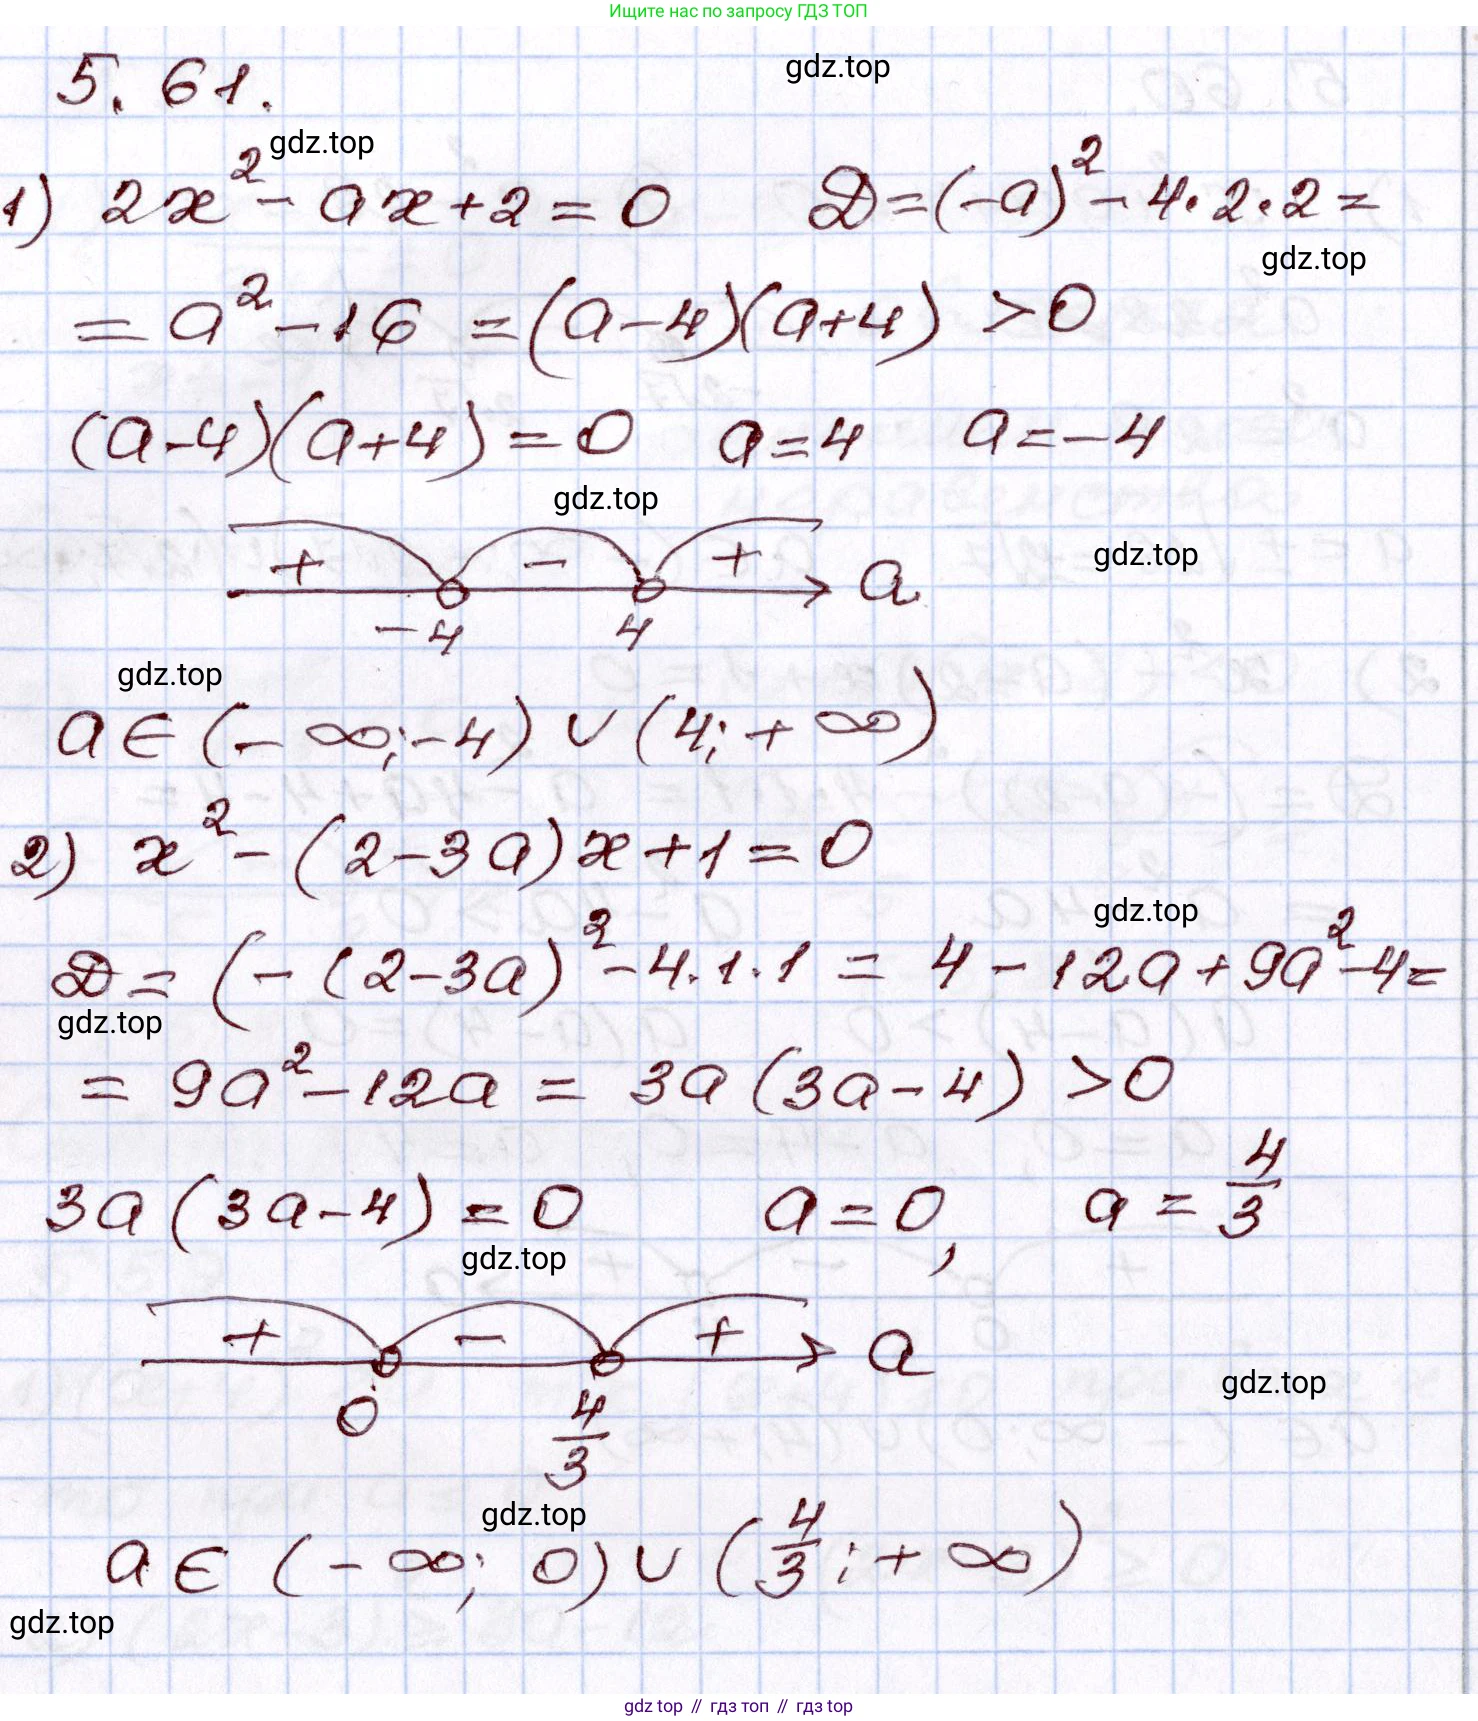 Ищите нас по запросу ГДЗ ТОП
gdz.top
5.61.
gdz.top
1) 2x² - ax + 2 = 0 D = (-a)² - 4·2·2 =
gdz.top
= a² - 16 = (a-4)(a+4) > 0
(a-4)(a+4) = 0 a = 4 a = -4
gdz.top
+ - + a
gdz.top
-4 4
gdz.top
a ∈ (-∞; -4) ∪ (4; +∞)
2) x² - (2-3a)x + 1 = 0
gdz.top
D = (-(2-3a)² - 4·1·1 = 4 - 12a + 9a² - 4 =
gdz.top
= 9a² - 12a = 3a(3a-4) > 0
3a(3a-4) = 0 a = 0, a = 4/3
gdz.top
+ - + a
gdz.top
0 4/3
gdz.top
a ∈ (-∞; 0) ∪ (4/3; +∞)
gdz.top
gdz top // гдз топ // гдз top